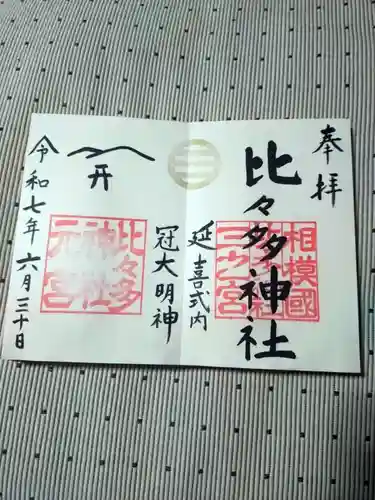 奉拝
比々多神社
相模國
三之宮
延喜式内
冠大明神
比々多
神社
元宮
令和七年六月三十日